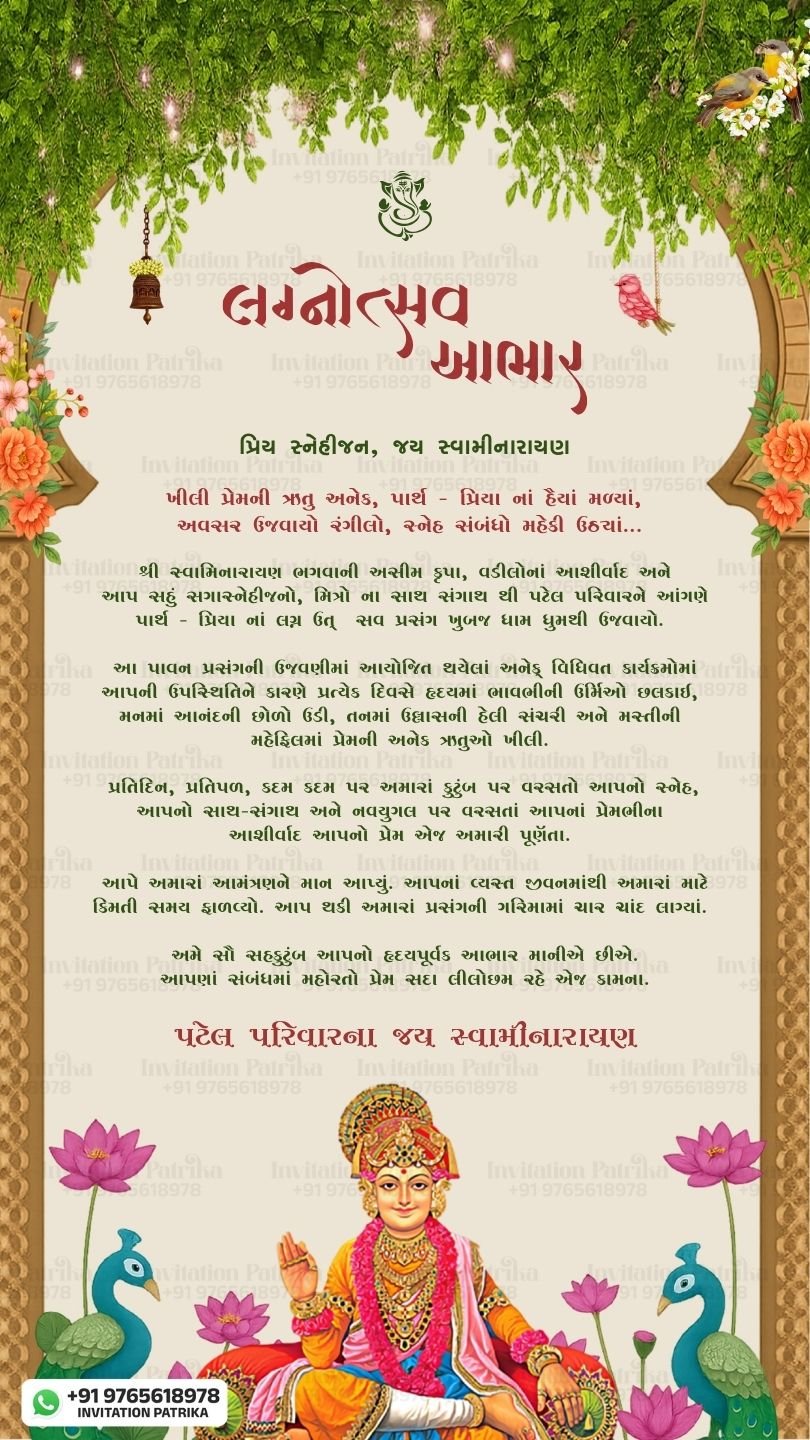 લગ્નોત્સવ
આભાર
પ્રિય સ્નેહીજન, જય સ્વામીનારાયણ
ખીલી પ્રેમની ઋતુ અનેક, પાર્થ - પ્રિયા નાં હૈયાં મળ્યાં,
અવસર ઉજવાયો રંગીલો, સ્નેહ સંબંધો મહેકી ઉઠયાં...
શ્રી સ્વામિનારાયણ ભગવાની અસીમ કૃપા, વડીલોનાં આશીર્વાદ અને
આપ સહું સગાસ્નેહીજનો, મિત્રો ના સાથ સંગાથ થી પટેલ પરિવારને આંગણે
પાર્થ - પ્રિયા નાં લગ્ન ઉત્ સવ પ્રસંગ ખુબજ ધામ ધુમથી ઉજવાયો.
આ પાવન પ્રસંગની ઉજવણીમાં આયોજિત થયેલાં અનેક્ વિધિવત કાર્યક્રમોમાં
આપની ઉપસ્થિતિને કારણે પ્રત્યેક દિવસે હૃદયમાં ભાવભીની ઉર્મિઓ છલકાઈ,
મનમાં આનંદની છોળો ઉડી, તનમાં ઉલ્લાસની હેલી સંચરી અને મસ્તીની
મહેફિલમાં પ્રેમની અનેક ઋતુઓ ખીલી.
પ્રતિદિન, પ્રતિપળ, કદમ કદમ પર અમારાં કુટુંબ પર વરસતો આપનો સ્નેહ,
આપનો સાથ-સંગાથ અને નવયુગલ પર વરસતાં આપનાં પ્રેમભીના
આશીર્વાદ આપનો પ્રેમ એજ અમારી પૂર્ણતા.
આપે અમારાં આમંત્રણને માન આપ્યું. આપનાં વ્યસ્ત જીવનમાંથી અમારાં માટે
કિમતી સમય ફાળવ્યો. આપ થકી અમારાં પ્રસંગની ગરિમામાં ચાર ચાંદ લાગ્યાં.
અમે સૌ સહકુટુંબ આપનો હૃદયપૂર્વક આભાર માનીએ છીએ.
આપણાં સંબંધમાં મહોરતો પ્રેમ સદા લીલોછમ રહે એજ કામના.
પટેલ પરિવારના જય સ્વામીનારાયણ
+91 9765618978
INVITATION PATRIKA